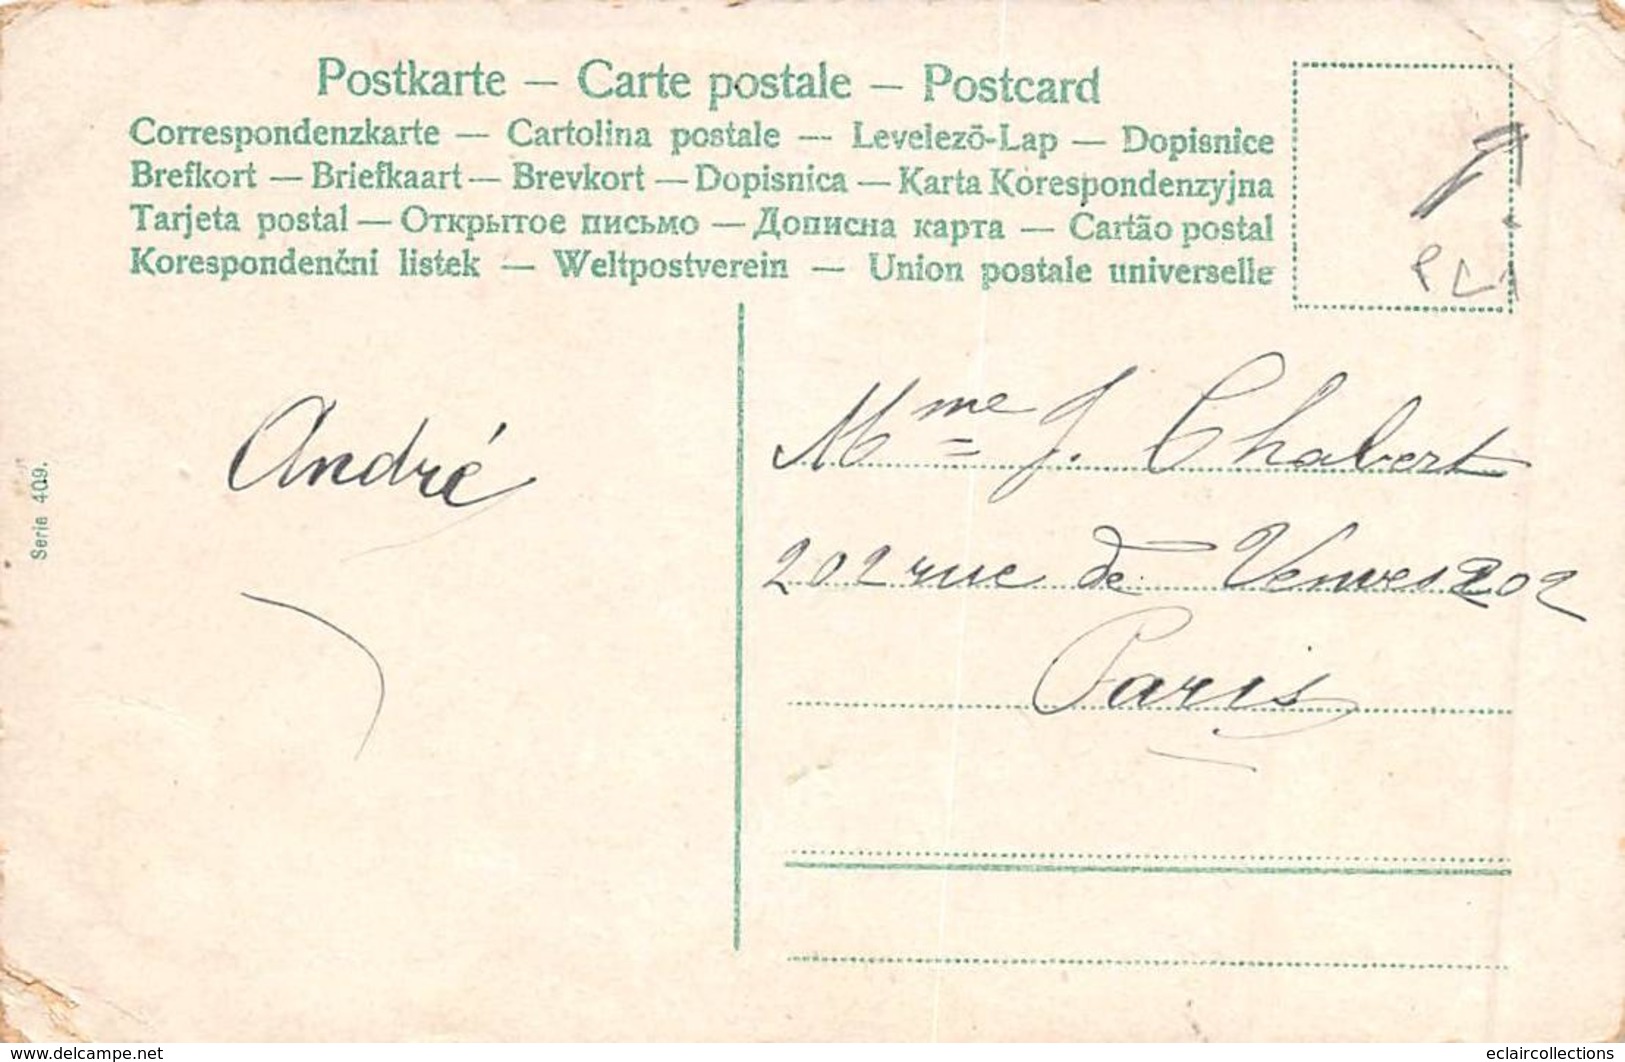 Postkarte — Carte postale — Postcard
Correspondenzkarte — Cartolina postale — Levelezö-Lap — Dopisnice
Brefkort — Briefkaart — Brevkort — Dopisnica — Karta Korespondenzyjna
Tarjeta postal — Открытое письмо — Дописна карта — Cartão postal
Korespondenčni listek — Weltpostverein — Union postale universelle
PL1
Serie 409.
André
Mme J. Chabert
202 rue de Vanves 202
Paris
www.delcampe.net
eclaircollections